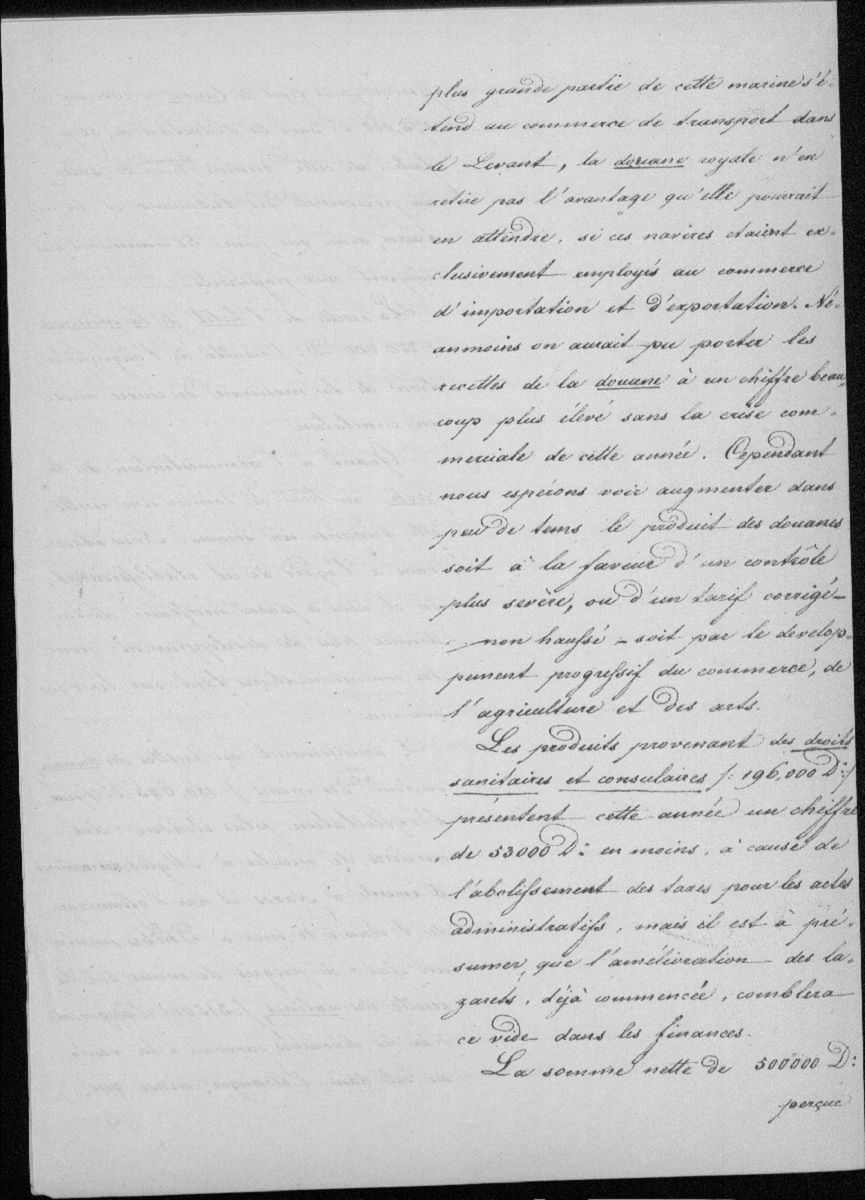 plus grande partie de cette marine s'é-
tend au commerce de transport dans
le Levant, la douane royale n'en
retire pas l'avantage qu'elle pourrait
en attendre, si ces navires etaient ex-
clusivement employés au commerce
d'importation et d'exportation. Né-
anmoins on aurait pu porter les
recettes de la douane à un chiffre beau-
coup plus élévé sans la crise com-
merciale de cette année. Cependant
nous espérons voir augmenter dans
peu de tems le produit des douanes
soit à la faveur d'un contrôle
plus sevère, ou d'un tarif corrigé-
-non haussé - soit par le develop-
pement progressif du commerce, de
l'agriculture et des arts.
Les produits provenant des droits
sanitaires et consulaires /: 196,000 D: :/
présentent cette année un chiffre
de 53000 D: en moins, à cause de
l'abolissement des taxes pour les actes
administratifs, mais il est à pré-
sumer que l'amélioration des la-
zarets, déjà commencée, comblera
ce vide dans les finances.
La somme nette de 500000 D:
perçue